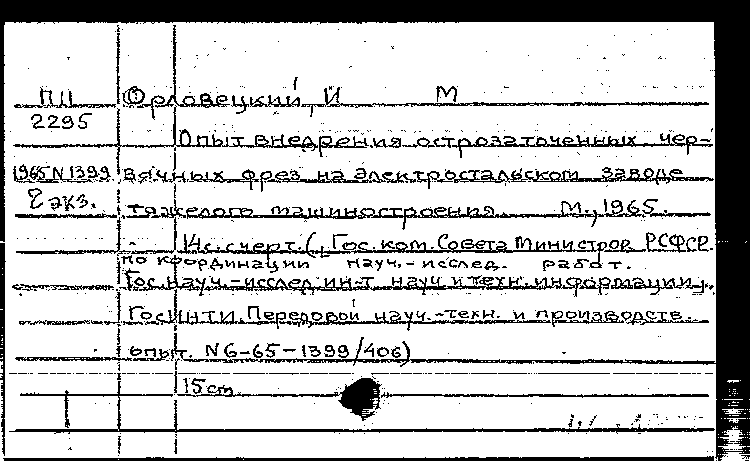 П11 Орловецкий, И М
2295
Опыт внедрения острозаточенных чер-
1965 N 1399 вячных фрез на Электростальском заводе
2 экз. тяжелого машиностроения. М., 1965.
14 с. с черт. (, Гос. ком. Совета Министров РСФСР
по координации науч.-исслед. работ.
Гос. науч.-исслед. ин-т науч и техн. информации,.
ГОСИНТИ. Передовой науч.-техн. и производств.
опыт. N 6-65-1399/406)
15 cm